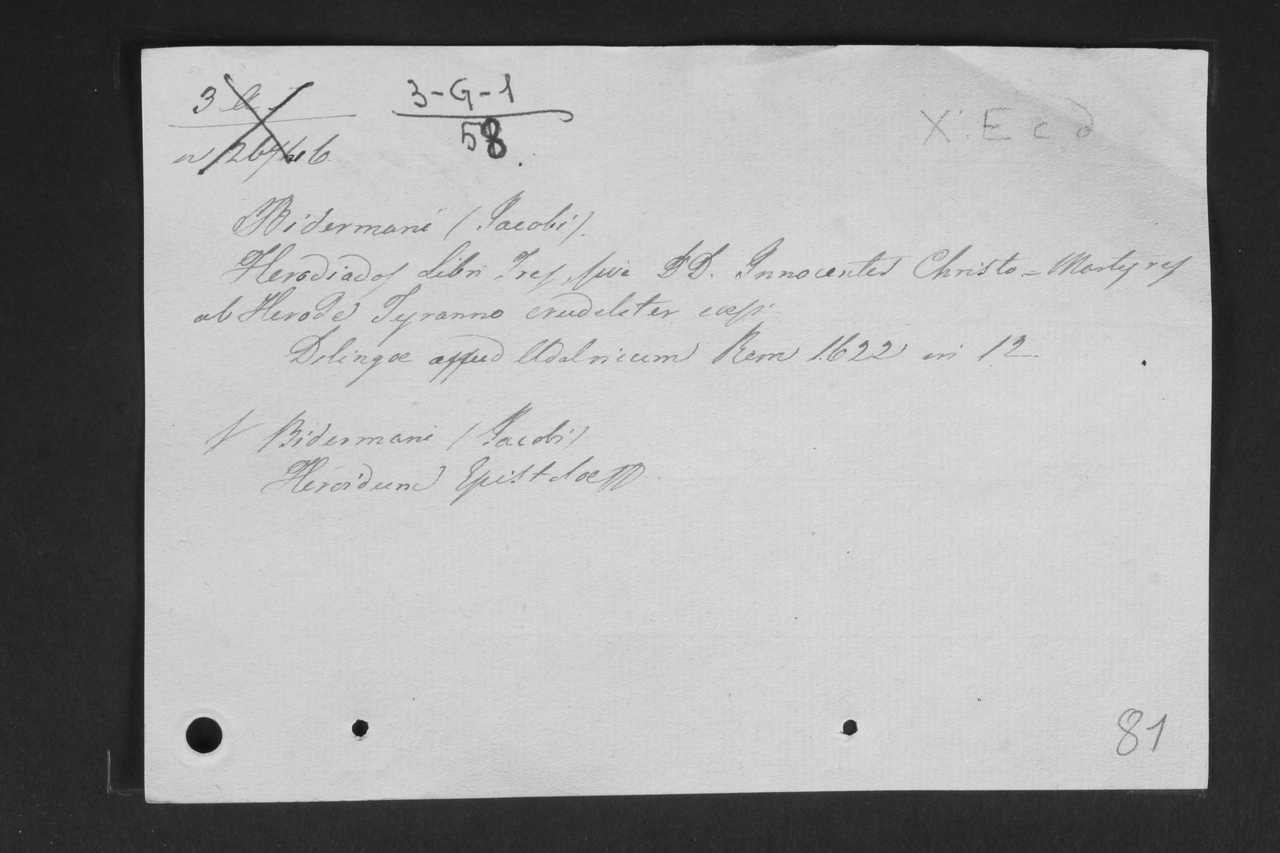 3-G-1
58.
X. E c d
Bidermani (Jacobi).
Herodiados Libri Tres, sive DD. Innocentes Christo-Martyres
ab Herode Tyranno crudeliter cæsi
Dilingæ apud Udalricum Rem 1622 in 12.
Bidermani (Jacobi)
Heroidum Epistolæ
81